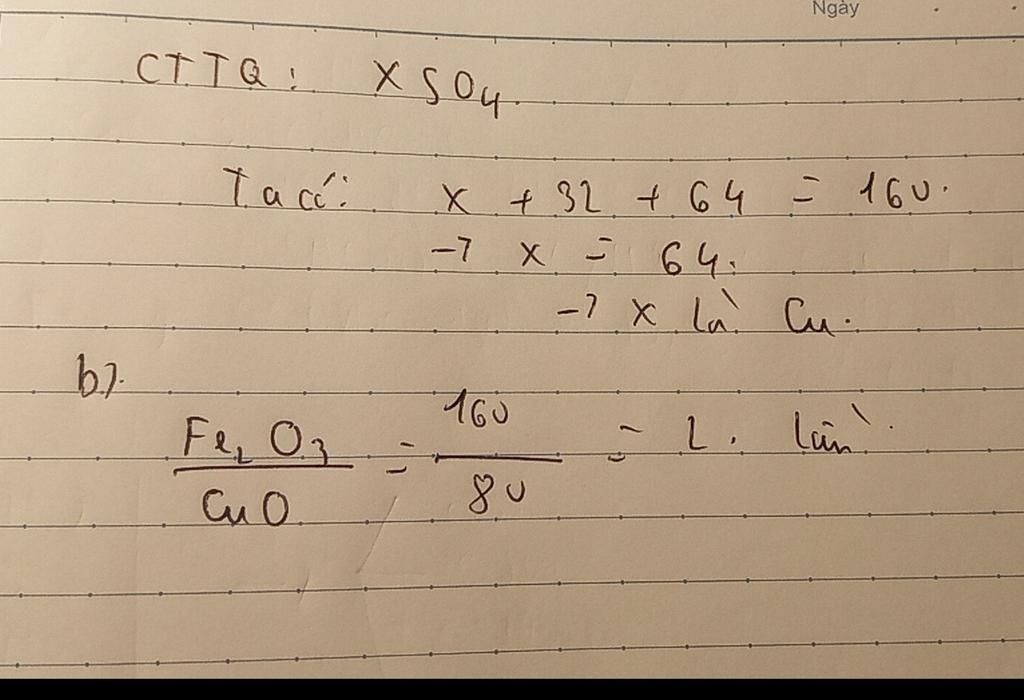 Ngày
CTTQ: XSO₄.
Ta có: X + 32 + 64 = 160.
→ X = 64.
→ X là Cu.
b).
Fe₂O₃ / CuO = 160 / 80 = 2. lần.